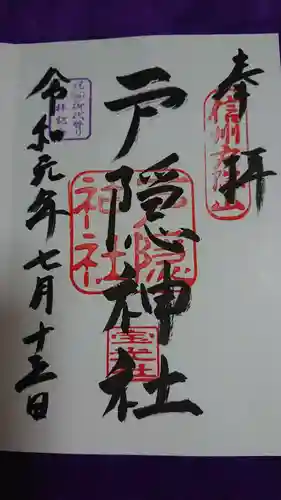 奉拝
信州戸隠山
戸隠神社
戸隠
神社
宝光社
令和元年七月十三日